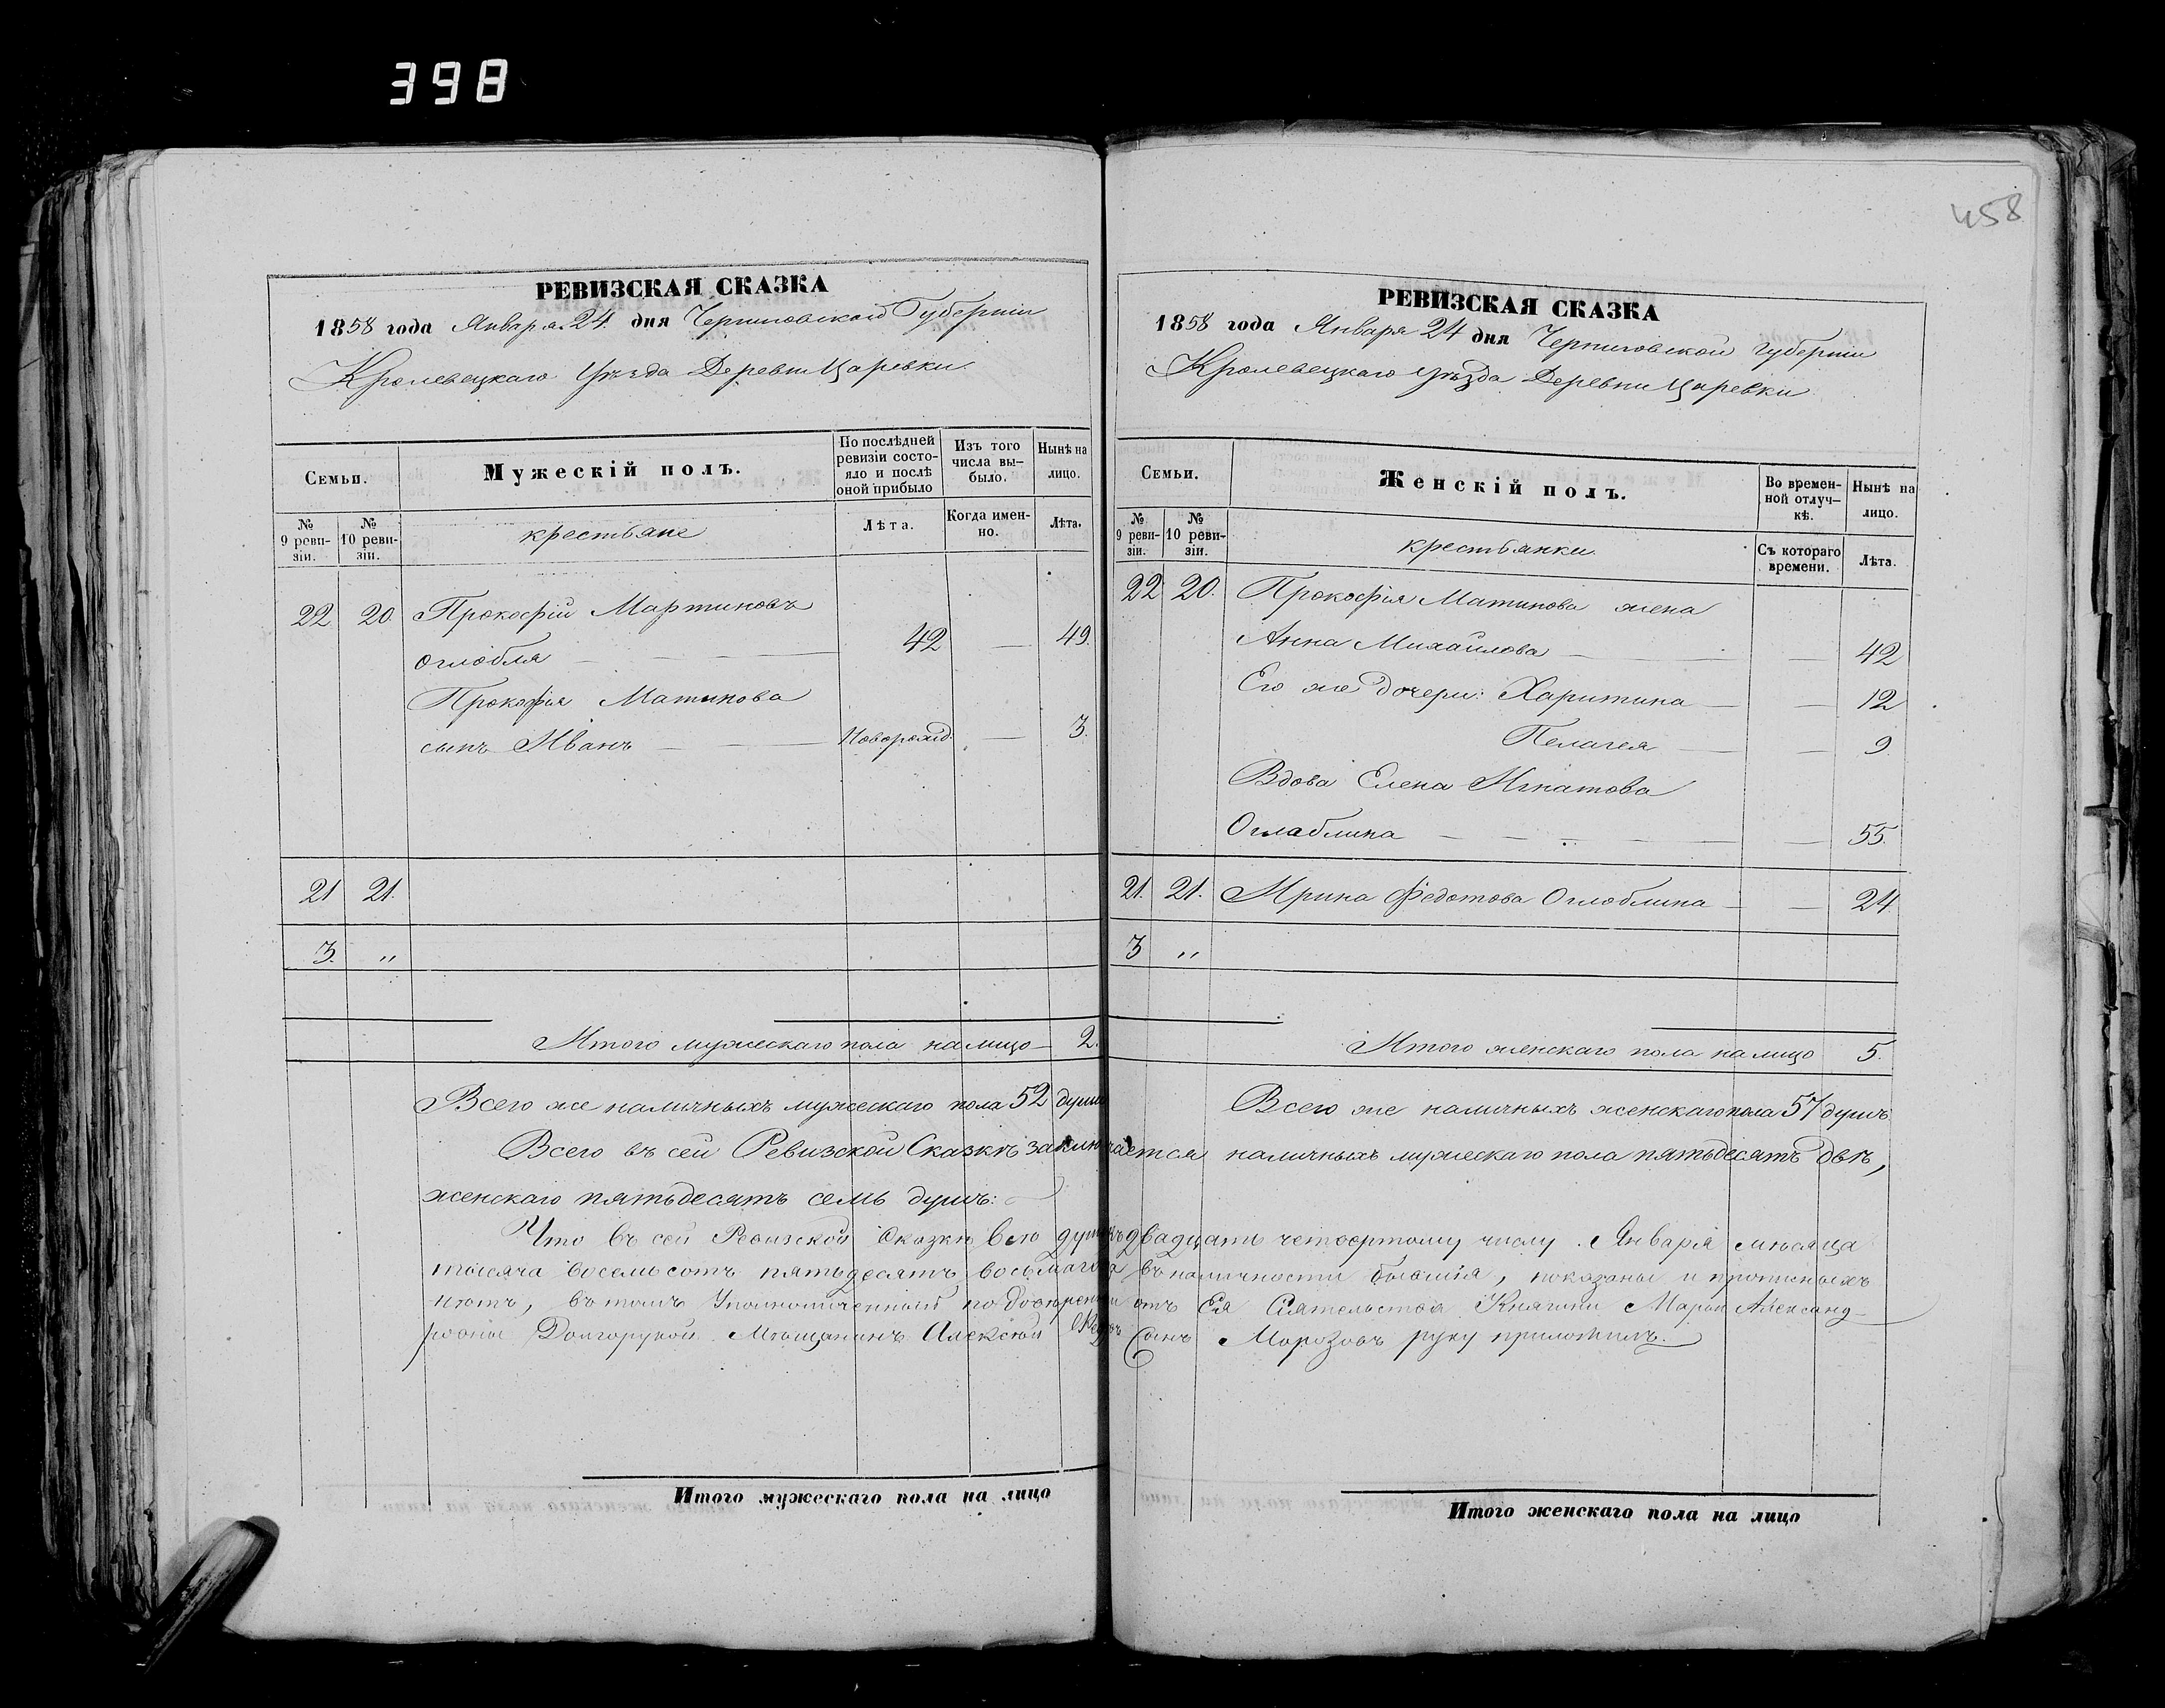 398
458
РЕВИЗСКАЯ СКАЗКА
1858 года Января 24 дня Черниговской Губерніи
Кролевецкаго Уѣзда Деревни Царевки
Семьи.
Мужескій полъ.
По послѣдней ревизіи состояло и послѣ оной прибыло
Изъ того числа выбыло.
Нынѣ на лицо.
№ 9 ревизіи.
№ 10 ревизіи.
крестьяне
Лѣта.
Когда именно.
Лѣта.
22 20. Прокофій Мартиновъ
Оглобля — — — 42 — 49.
Прокофія Матинова
сынъ Иванъ — — Новорожд. — 3.
21 21.
3. „
Итого мужескаго пола на лицо — 2.
Всего же наличныхъ мужескаго пола 52 душъ
РЕВИЗСКАЯ СКАЗКА
1858 года Января 24 дня Черниговской Губерніи
Кролевецкаго Уѣзда Деревни Царевки
Семьи.
Женскій полъ.
Во временной отлучкѣ.
Нынѣ на лицо.
№ 9 ревизіи.
№ 10 ревизіи.
крестьянки.
Съ котораго времени.
Лѣта.
22 20. Прокофія Матинова жена
Анна Михайлова — — — 42
Его же дочери: Харитина — — 12
Пелагея — — 9
Вдова Елена Игнатова
Оглаблина — — — — 55.
21. 21. Ирина Федотова Оглоблина — — 24.
3 „
Итого женскаго пола на лицо 5.
Всего же наличныхъ женскаго пола 57 душъ
Всего въ сей Ревизской Сказкѣ заключается наличныхъ мужескаго пола пятьдесятъ двѣ,
женскаго пятьдесятъ семь душъ:
Что въ сей Ревизской Сказкѣ всѣ души къ двадцать четвертому числу Января мѣсяца
тысяча восемьсотъ пятьдесятъ восьмаго года въ наличности бывшія, показаны и прописныхъ
нѣтъ, въ томъ Уполномоченный по довѣренности отъ Ея Сіятельства Княгини Маріи Александ-
ровны Долгорукой Мѣщанинъ Алексѣй сынъ Морозовъ руку приложилъ.
Итого мужескаго пола на лицо
Итого женскаго пола на лицо